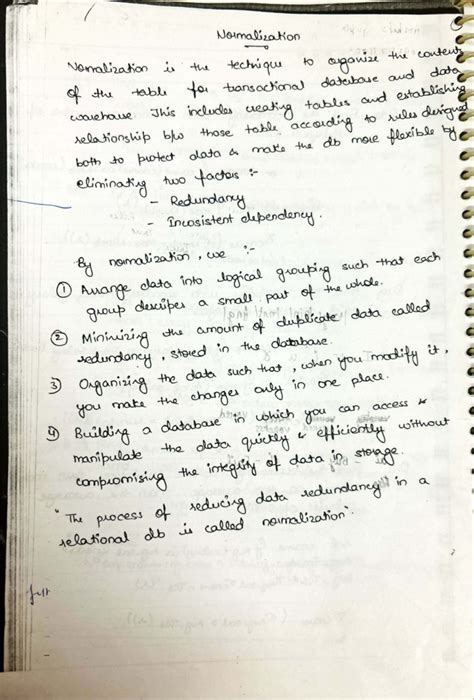 Normalization
Normalization is the technique to organize the contents
of the table for transactional database and data
warehouse. This includes creating tables and establishing
relationship b/w those table according to rules designed
both to protect data & make the db more flexible by
eliminating two factors :-
- Redundancy
- Incosistent dependency.
By normalization, we :-
① Arrange data into logical grouping such that each
group describes a small part of the whole.
② Minimizing the amount of duplicate data called
redundancy, stored in the database.
3) Organizing the data such that, when you modify it,
you make the changes only in one place.
4) Building a database in which you can access &
manipulate the data quickly & efficiently without
compromising the integrity of data in storage.
"The process of reducing data redundancy in a
relational db is called normalization".